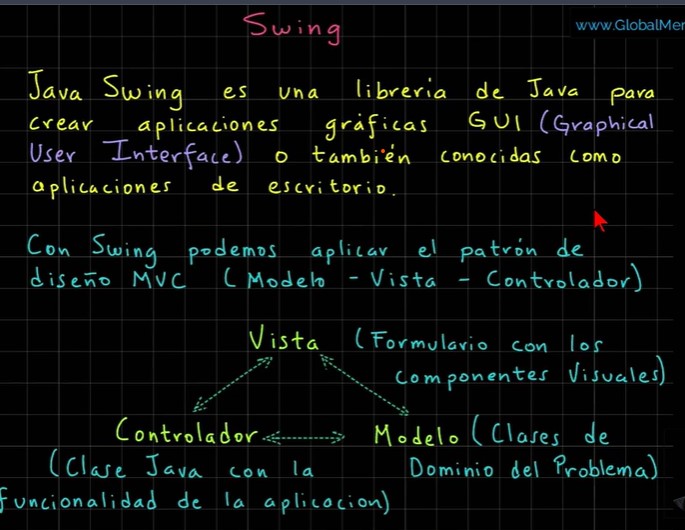 Swing
www.GlobalMen
Java Swing es una librería de Java para
crear aplicaciones gráficas GUI (Graphical
User Interface) o también conocidas como
aplicaciones de escritorio.
Con Swing podemos aplicar el patrón de
diseño MVC (Modelo - Vista - Controlador)
Vista (Formulario con los
componentes Visuales)
Controlador Modelo (Clases de
(Clase Java con la Dominio del Problema)
funcionalidad de la aplicacion)